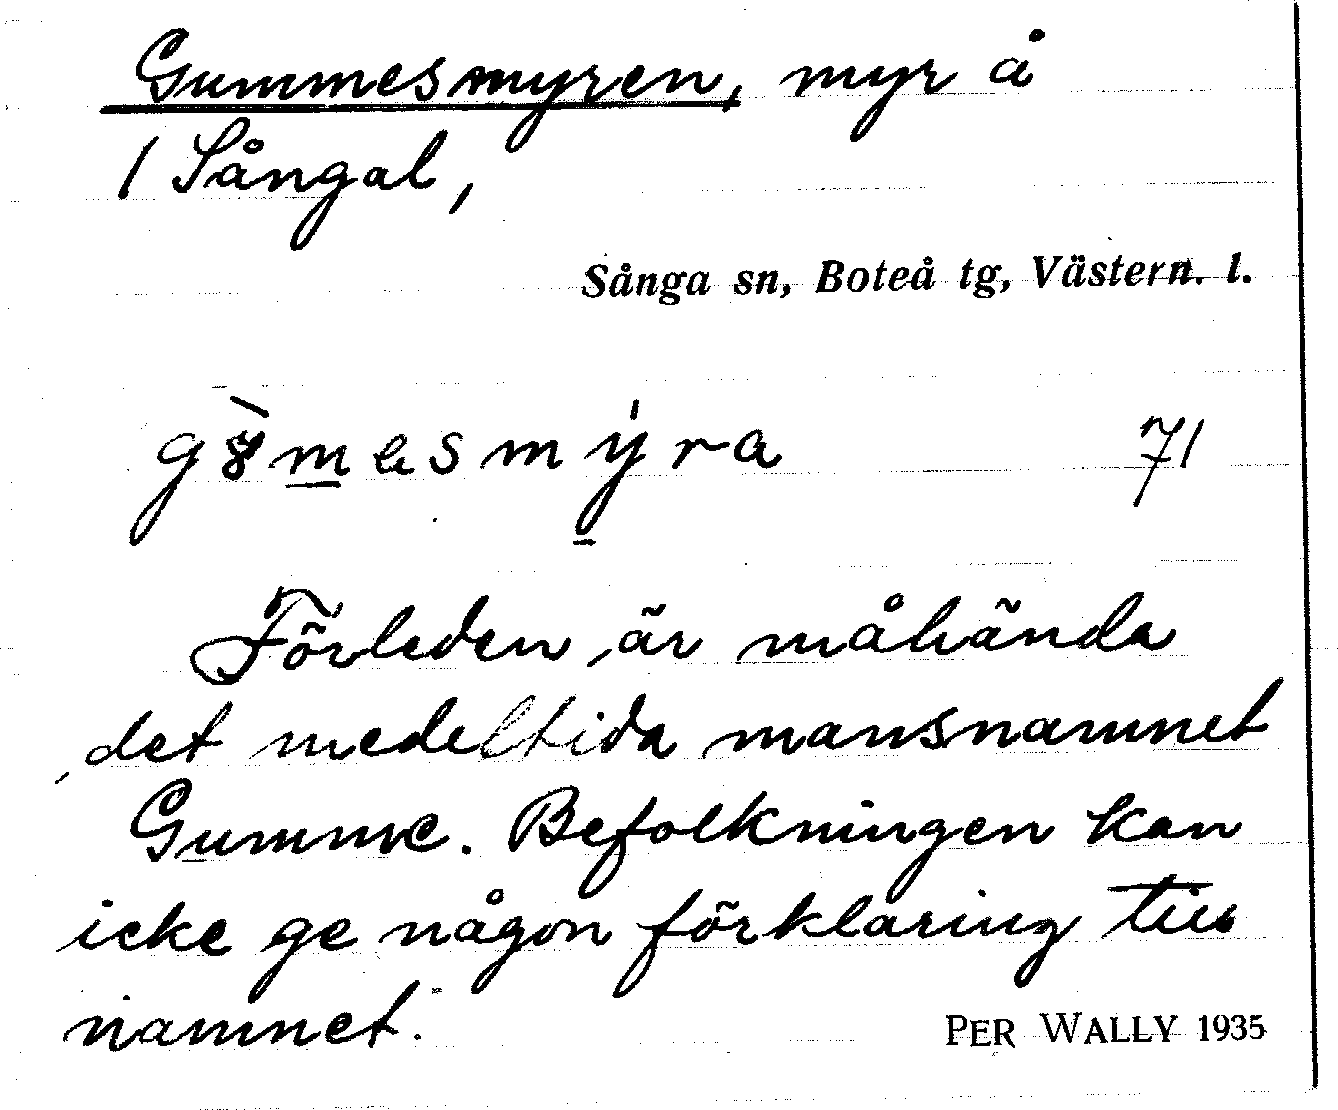 Gummesmyren, myr å
1 Sångal,
Sånga sn, Boteå tg, Västern. l.
71
Förleden är måhända
det medeltida mansnamnet
Gumme. Befolkningen kan
icke ge någon förklaring till
namnet.
PER WALLY 1935